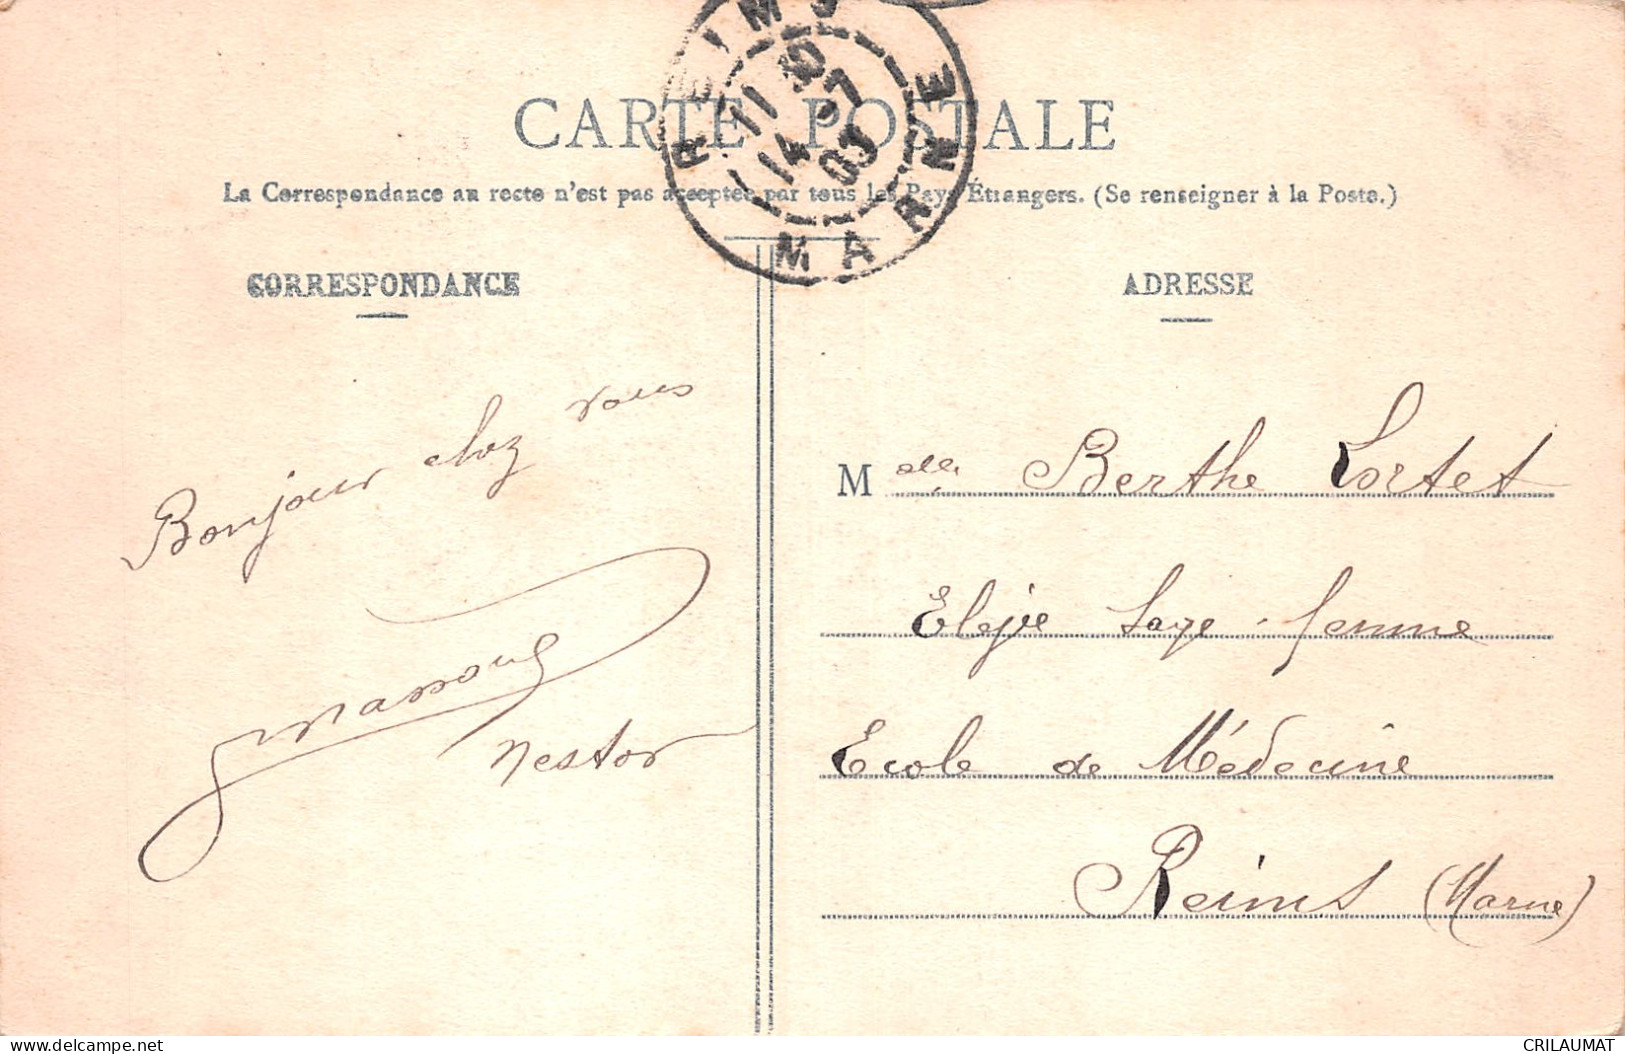 CARTE POSTALE
La Correspondance au recto n'est pas acceptée par tous les Pays Étrangers. (Se renseigner à la Poste.)
REIMS
11 30
14 -7
MARNE
CORRESPONDANCE
ADRESSE
Bonjour chez vous
Nestor
Melle Berthe Lortet
Elève Sage-femme
Ecole de Médecine
Reims (Marne)
www.delcampe.net
CRILAUMAT